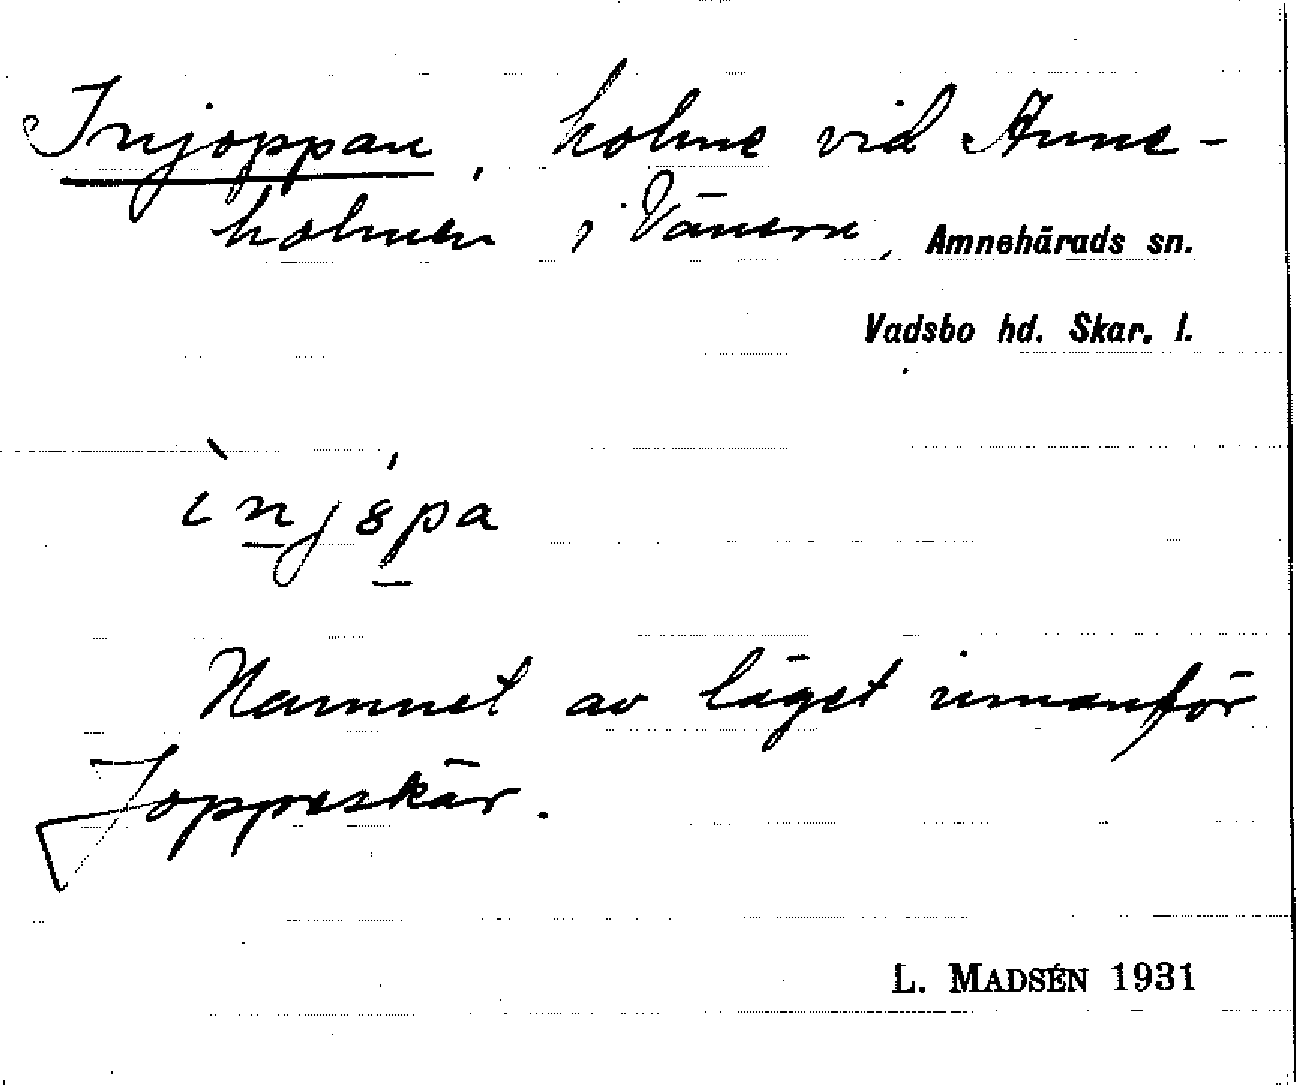 Injoppan, holme vid Anne-
holmen i Vänern, Amnehärads sn.
Vadsbo hd. Skar. l.
ìnjȣ́pa
Namnet av läget innanför
Joppeskär.
L. MADSÉN 1931